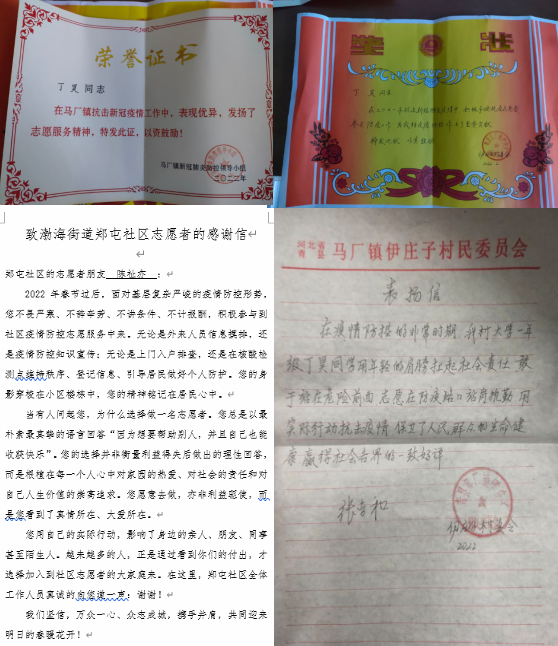 荣誉证书
丁昊同志
在马厂镇抗击新冠疫情工作中，表现优异，发扬了
志愿服务精神，特发此证，以资鼓励！
马厂镇新冠肺炎防控领导小组
二〇二二年
奖状
丁昊同志
特发此状 以资鼓励
致渤海街道郑屯社区志愿者的感谢信
郑屯社区的志愿者朋友 陈祉亦 ：
2022 年春节过后，面对基层复杂严峻的疫情防控形势，
您不畏严寒、不辞辛劳、不讲条件、不计报酬，积极参与到
社区疫情防控志愿服务中来。无论是外来人员信息摸排，还
是疫情防控知识宣传；无论是上门入户排查，还是在核酸检
测点维持秩序、登记信息、引导居民做好个人防护。您的身
影穿梭在小区楼栋中，您的精神铭记在居民心中。
当有人问起您，为什么选择做一名志愿者。您总是以最
朴素最真挚的语言回答“因为想要帮助别人，并且自己也能
收获快乐”。您的选择并非衡量利益得失后做出的理性回答，
而是根植在每一个人心中对家园的热爱、对社会的责任和对
自己人生价值的崇高追求。您愿意去做，亦非利益驱使，而
是您看到了真情所在、大爱所在。
您用自己的实际行动，影响了身边的亲人、朋友、同事
甚至陌生人。越来越多的人，正是通过看到你们的付出，才
选择加入到社区志愿者的大家庭来。在这里，郑屯社区全体
工作人员真诚的向您道一声：谢谢！
我们坚信，万众一心、众志成城，携手并肩，共同迎来
明日的春暖花开！
河北省
青县 马厂镇伊庄子村民委员会
表扬信
在疫情防控的非常时期，我村大学一年
级丁昊同学用年轻的肩膀扛起社会责任 敢
于站在危险前面 志愿在防疫路口站岗执勤 用
实际行动抗击疫情 保卫了人民群众的生命健
康 赢得社会各界的一致好评
2022